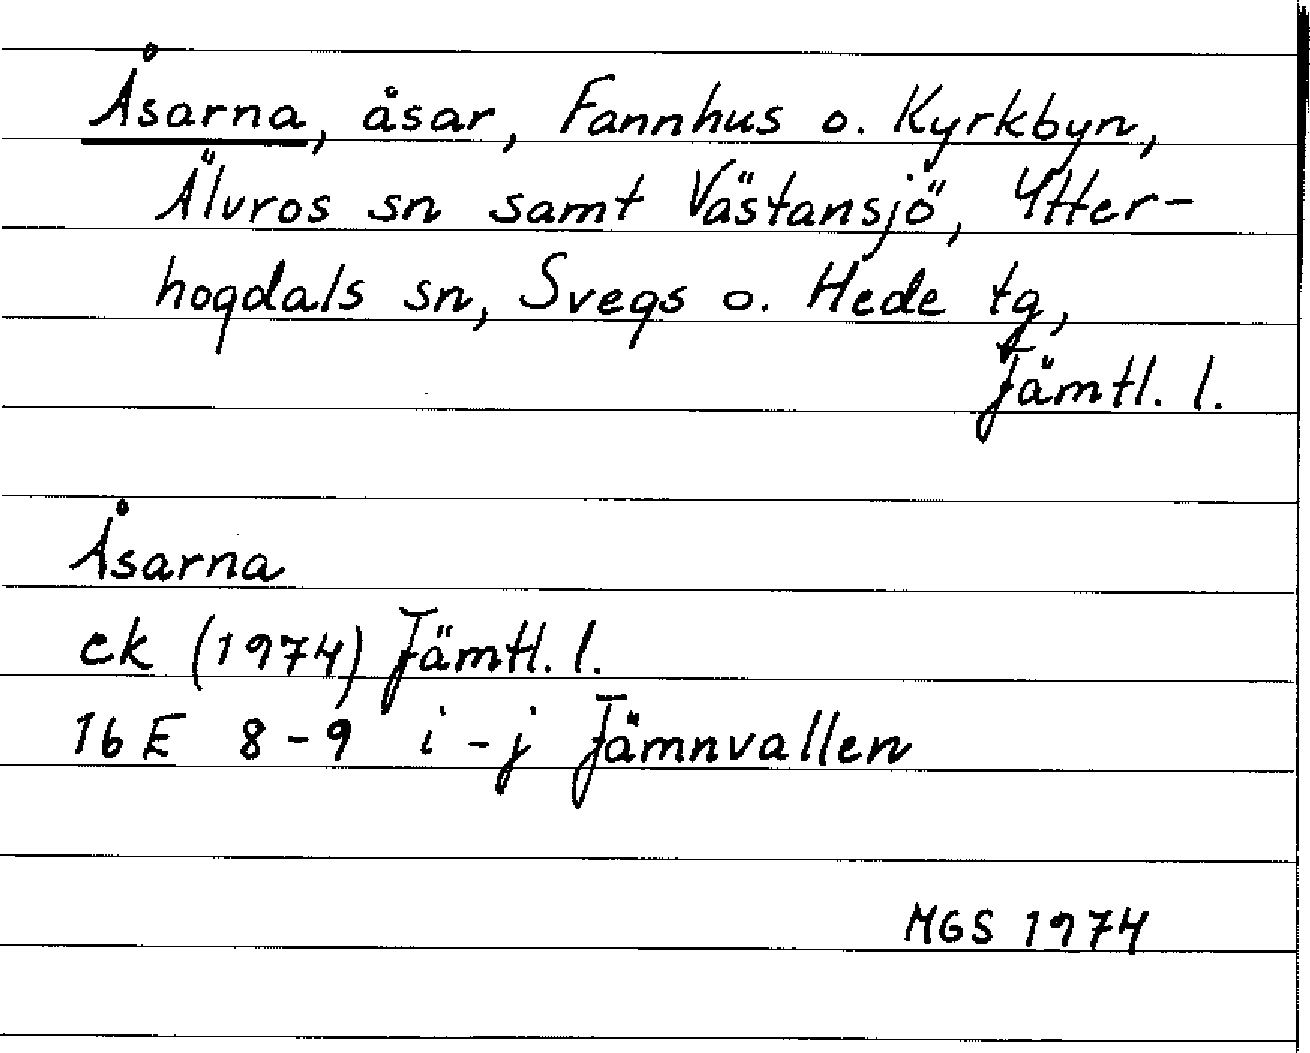 Åsarna, åsar, Fannhus o. Kyrkbyn,
Älvros sn samt Västansjö, Ytter-
hogdals sn, Svegs o. Hede tg,
Jämtl. l.
Åsarna
ek (1974) Jämtl. l.
16 E 8-9 i-j Jämnvallen
MGS 1974